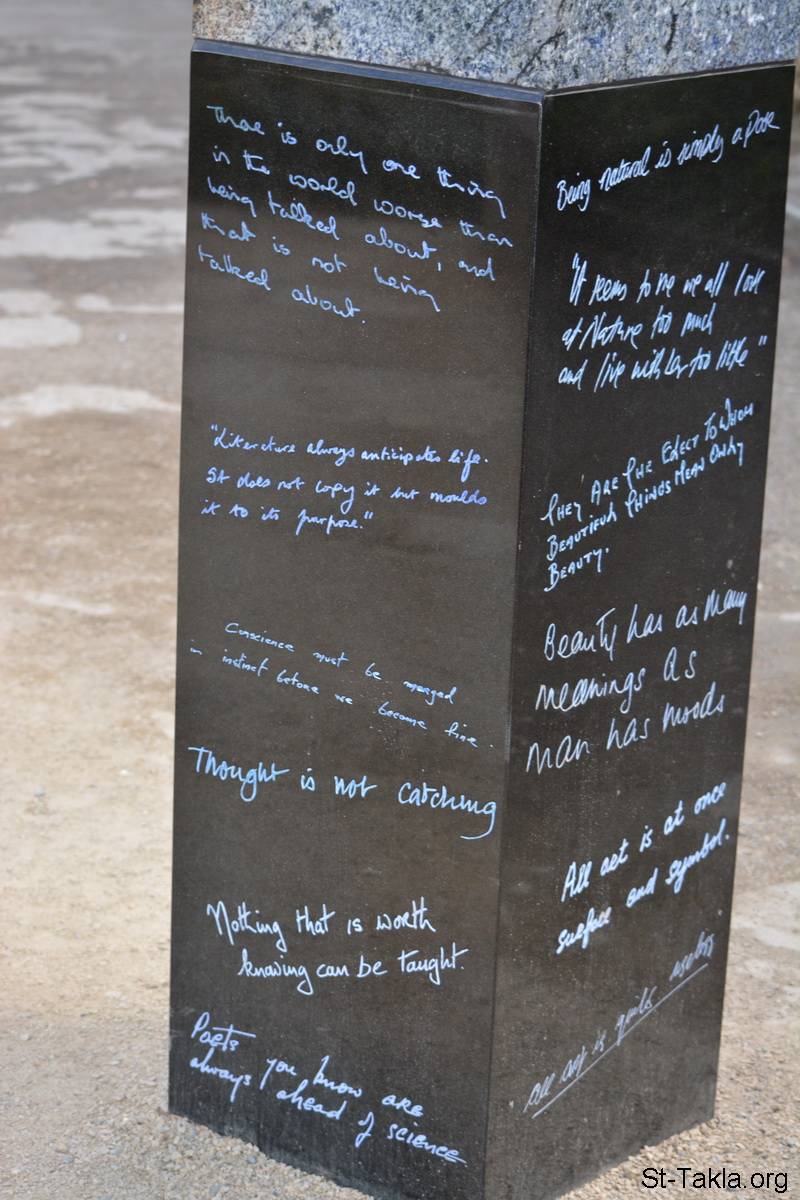 There is only one thing
in the world worse than
being talked about, and
that is not being
talked about.
"Literature always anticipates life.
It does not copy it but moulds
it to its purpose."
Conscience must be merged
in instinct before we become fine.
Thought is not catching
Nothing that is worth
knowing can be taught.
Poets you know are
always ahead of science
Being natural is simply a pose
"It seems to me we all look
at Nature too much
and live with her too little"
They Are The Elect To Whom
Beautiful Things Mean Only
Beauty.
Beauty has as many
meanings as
man has moods
All art is at once
surface and symbol.
all art is quite useless
St-Takla.org